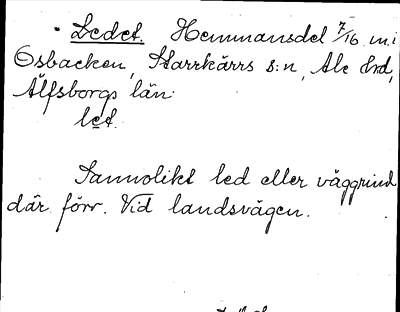 · Ledet. Hemmansdel 7/16 m. i
Osbacken, Starrkärrs s:n, Ale hrd,
Älfsborgs län.
let.
Sannolikt led eller väggrind
där förr. Vid landsvägen.